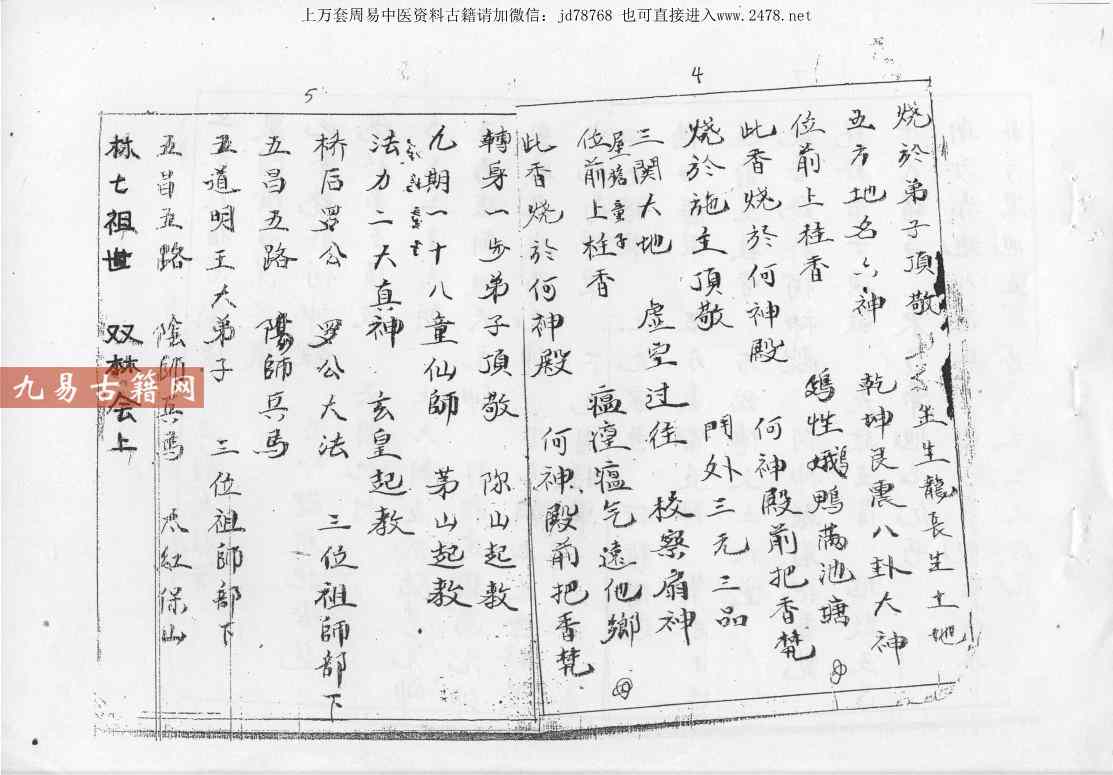 上万套周易中医资料古籍请加微信：jd78768 也可直接进入www.2478.net
4
烧於弟子頂敬 坐生龍長生土地
五方地名六神 乾坤艮震八卦大神
位前上柱香 鴉性娥鴨滿池塘
此香烧於何神殿 何神殿前把香焚
烧於施主頂敬 門外三元三品
三関大地 虚空过往 校察扇神
屋簷童子
位前上柱香 瘟瘟气遠他鄉
此香烧於何神殿 何神殿前把香焚
5
轉身一步弟子頂敬 弥山起教
九期一十八童仙師 茅山起教
法力二大真神 玄皇起教
桥后罗公 罗公大法 三位祖師部下
五昌五路 陽師兵馬
五道明王大弟子 三位祖師部下
五昌五路 陰師兵馬 保山
林七祖世 双林会上
九易古籍网